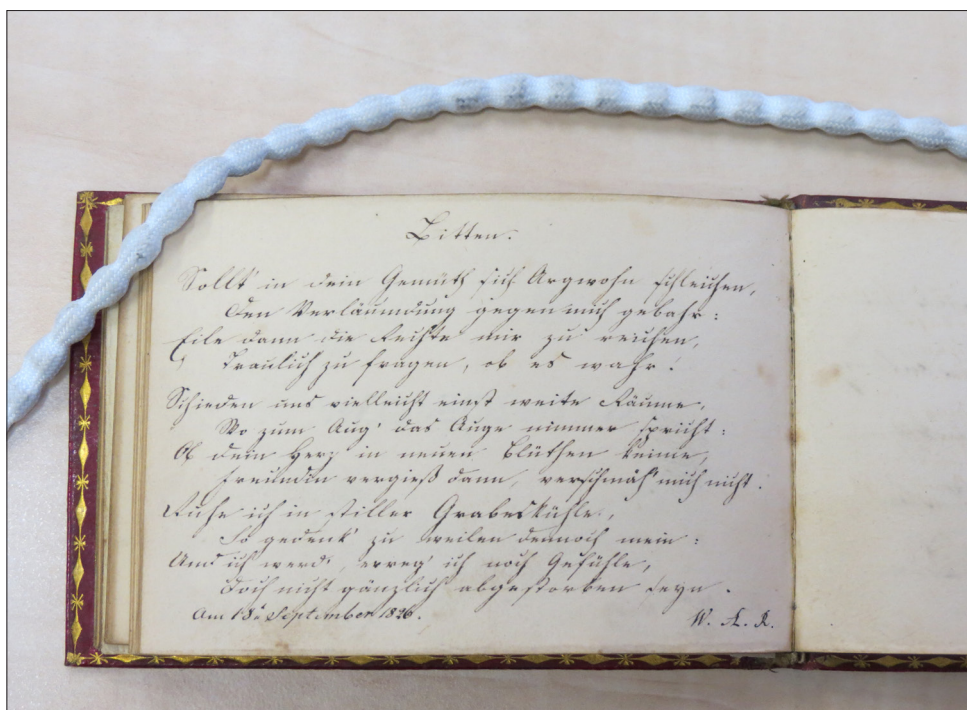 Bitten.
Sollt' in dein Gemüth sich Argwohn schleichen,
Den Verläumdung gegen mich gebahr:
Eile dann die Rechte mir zu reichen,
Traulich zu fragen, ob es wahr!
Schieden uns vielleicht einst weite Räume,
Wo zum Aug' das Auge nimmer spricht:
Ob dein Herz in neuen Blüthen keime,
Freundin vergieß dann, verschmäh' mich nicht.
Ruhe ich in stiller Grabeskühle,
So gedenk' zu weilen dennoch mein:
Und ich werd', erreg' ich noch Gefühle,
Doch nicht gänzlich abgestorben seyn.
Am 18. September 1826.
W. A. R.